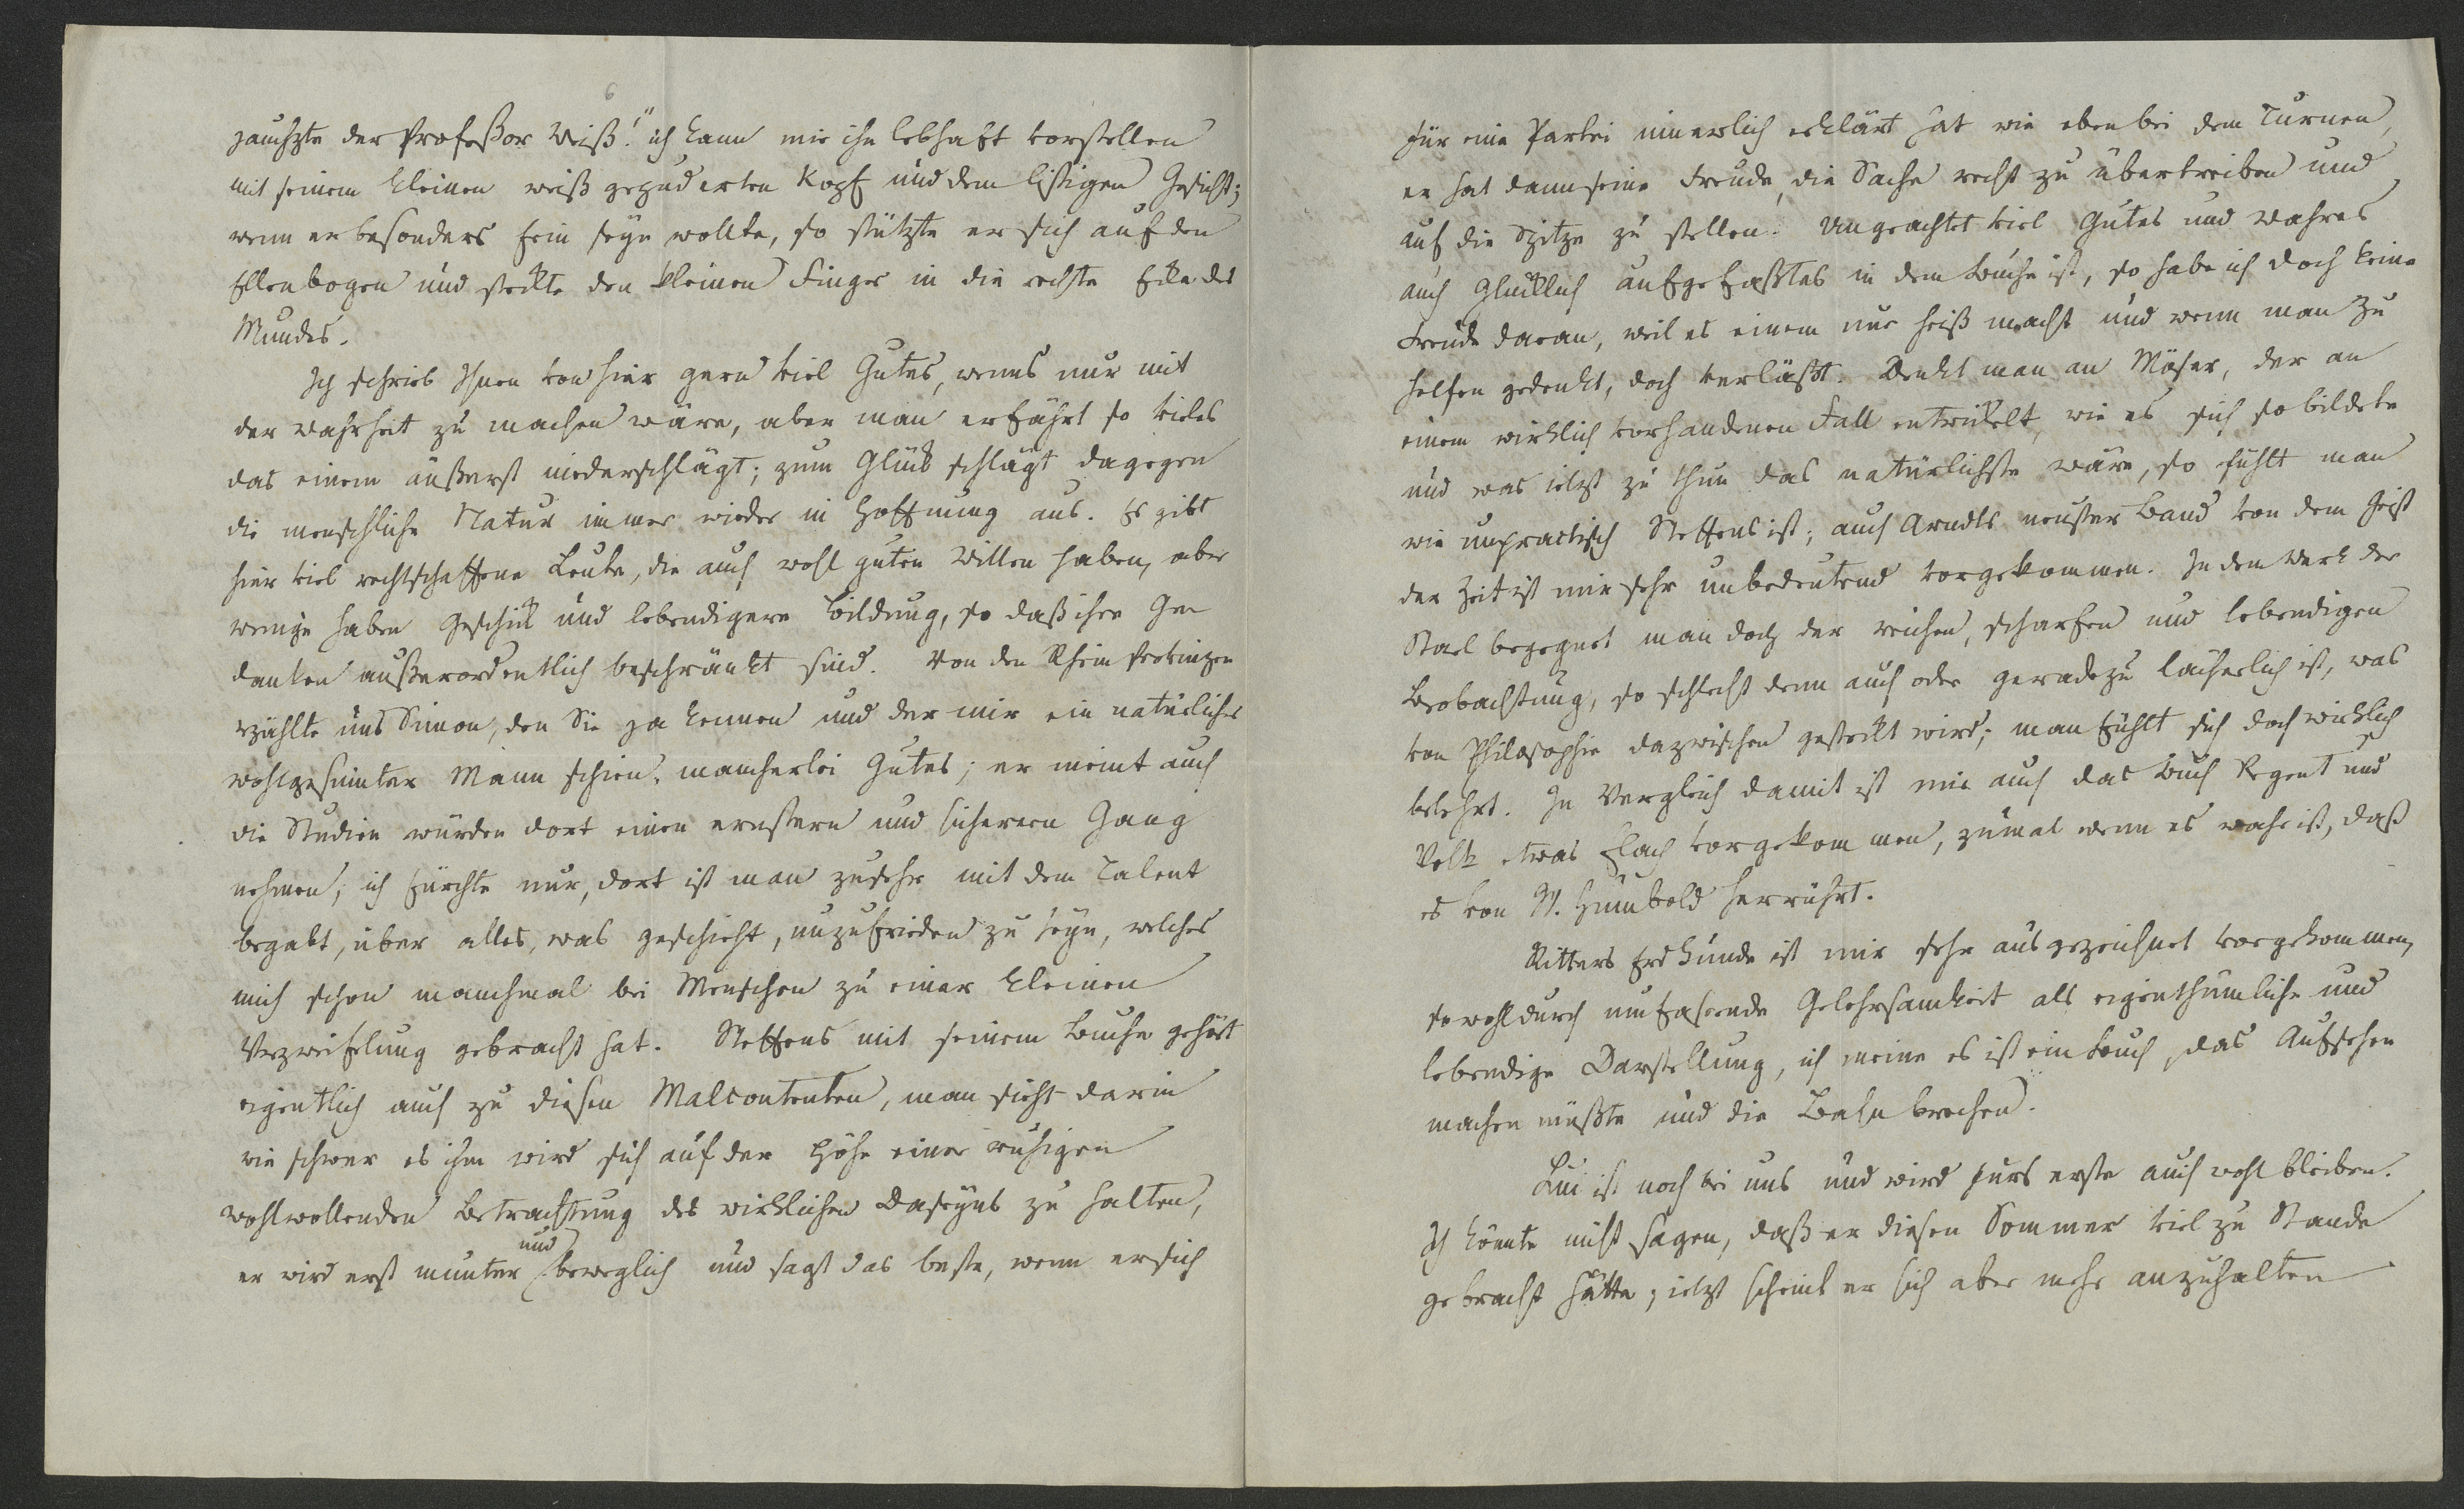 6
jauchzte der Profeßor Weiß!" ich kann mir ihn lebhaft vorstellen
mit seinem kleinen weiß gepuderten Kopf und dem listigen Gesicht;
wenn er besonders fein seyn wollte, so stützte er sich auf den
Ellenbogen und steckte den kleinen Finger in die rechte Ecke des
Mundes.
Ich schrieb Ihnen von hier gern viel Gutes, wenns nur mit
der Wahrheit zu machen wäre, aber man erfährt so vieles
das einem äußerst niederschlägt; zum Glück schlägt dagegen
die menschliche Natur immer wieder in Hoffnung aus. Es gibt
hier viel rechtschaffene Leute, die auch wohl guten Willen haben, aber
wenige haben Geschick und lebendigere Bildung, so daß ihre Ge
danken außerordentlich beschränkt sind. Von den Rheinprovinzen
erzählte uns Simon, den Sie ja kennen und der mir ein natürlicher
wohlgesinnter Mann schien, mancherlei Gutes; er meint auch
die Studien würden dort einen ernstern und sicherern Gang
nehmen; ich fürchte nur, dort ist man zusehr mit dem Talent
begabt, über alles, was geschieht, unzufrieden zu seyn, welches
mich schon manchmal bei Menschen zu einer kleinen
Verzweifelung gebracht hat. Steffens mit seinem Buche gehört
eigentlich auch zu diesen Malcontenten, man sieht darin
wie schwer es ihm wird sich auf der Höhe einer ruhigen
wohlwollenden Betrachtung des wirklichen Daseyns zu halten,
er wird erst munter und beweglich und sagt das beste, wenn er sich
für eine Partei innerlich erklärt hat wie eben bei dem Turnen,
er hat dann seine Freude, die Sache recht zu übertreiben und
auf die Spitze zu stellen. Ungeachtet viel Gutes und Wahres
auch glücklich aufgefaßtes in dem Buche ist, so habe ich doch keine
Freude daran, weil es einem nur heiß macht und wenn man zu
helfen gedenkt, doch verläßt. Denkt man an Möser, der an
einem wirklich vorhandenen Fall entwickelt, wie es sich so bildete
und was jetzt zu thun das natürlichste wäre, so fühlt man
wie unpractisch Steffens ist; auch Arndts neuster Band von dem Geist
der Zeit ist mir sehr unbedeutend vorgekommen. In dem Werk der
Stael begegnet man doch der reichen, scharfen und lebendigen
Beobachtung, so schlecht denn auch oder geradezu lächerlich ist, was
von Philosophie dazwischen gesteckt wird; man fühlt sich doch wirklich
belehrt. In Vergleich damit ist mir auch das Buch Regent und
Volk etwas flach vorgekommen, zumal wenn es wahr ist, daß
es von W. Humbold herrührt.
Ritters Erdkunde ist mir sehr ausgezeichnet vorgekommen,
sowohl durch umfasende Gelehrsamkeit als eigenthümliche und
lebendige Darstellung, ich meine es ist ein Buch, das Aufsehen
machen müßte und die Bahn brechen.
Lui ist noch bei uns und wird fürs erste auch wohl bleiben.
Ich könnte nicht sagen, daß er diesen Sommer viel zu Stande
gebracht hätte; jetzt scheint er sich aber mehr anzuhalten